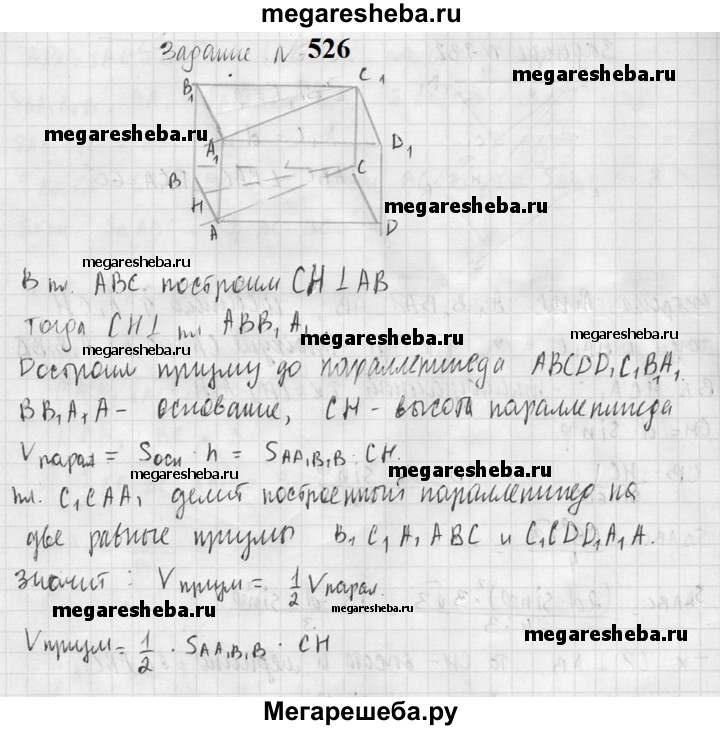 megaresheba.ru
Задание N 526
B₁ C₁
megaresheba.ru
megaresheba.ru
A₁ D₁
B C
megaresheba.ru
H
A D
megaresheba.ru
В пл. ABC построим CH ⊥ AB
megaresheba.ru
тогда CH ⊥ пл. ABB₁A₁
megaresheba.ru
megaresheba.ru
Достроим призму до параллепипеда ABCDD₁C₁BA₁
megaresheba.ru
BB₁A₁A - основание, CH - высота параллепипеда
Vпарал = Sосн · h = SAA₁B₁B · CH.
megaresheba.ru
megaresheba.ru
пл. C₁CAA₁ делит построенный параллепипед на
две равные призмы B₁C₁A₁ABC и C₁CDD₁A₁A.
значит: Vпризм = 1/2 Vпарал.
megaresheba.ru
megaresheba.ru
megaresheba.ru
Vпризм = 1/2 · SAA₁B₁B · CH
Мегарешеба.ру